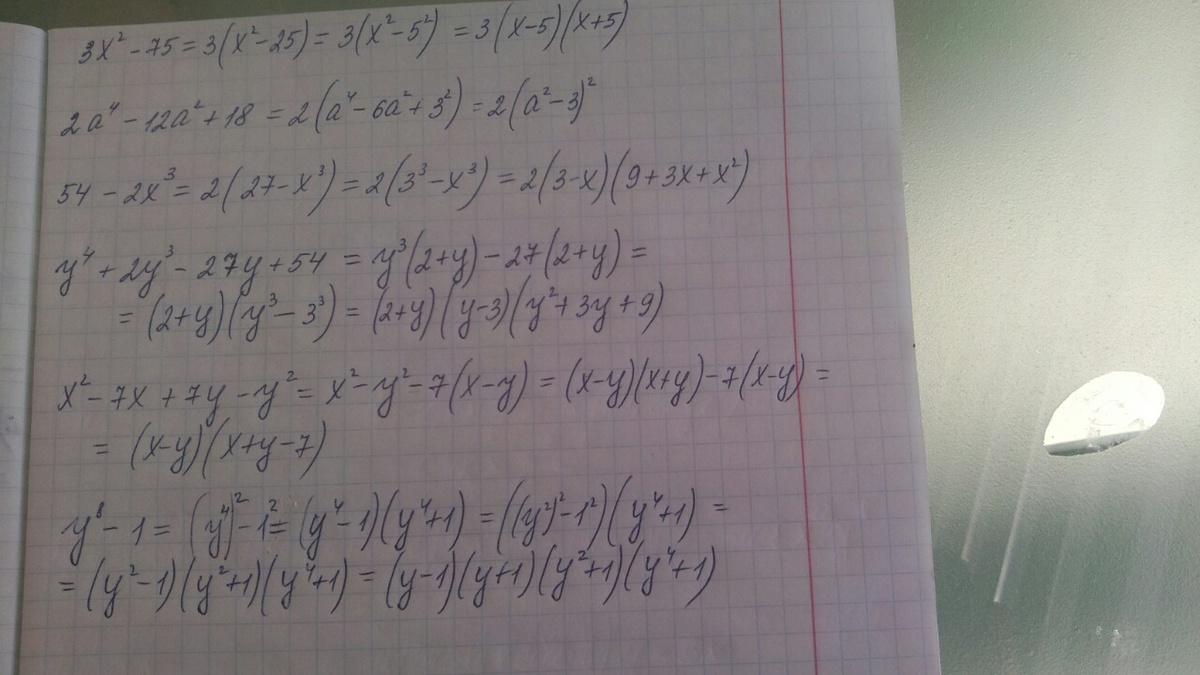 3x² - 75 = 3(x² - 25) = 3(x² - 5²) = 3(x - 5)(x + 5)
2a⁴ - 12a² + 18 = 2(a⁴ - 6a² + 3²) = 2(a² - 3)²
54 - 2x³ = 2(27 - x³) = 2(3³ - x³) = 2(3 - x)(9 + 3x + x²)
y⁴ + 2y³ - 27y + 54 = y³(2 + y) - 27(2 + y) =
= (2 + y)(y³ - 3³) = (2 + y)(y - 3)(y² + 3y + 9)
x² - 7x + 7y - y² = x² - y² - 7(x - y) = (x - y)(x + y) - 7(x - y) =
= (x - y)(x + y - 7)
y⁸ - 1 = (y⁴)² - 1² = (y⁴ - 1)(y⁴ + 1) = ((y²)² - 1²)(y⁴ + 1) =
= (y² - 1)(y² + 1)(y⁴ + 1) = (y - 1)(y + 1)(y² + 1)(y⁴ + 1)